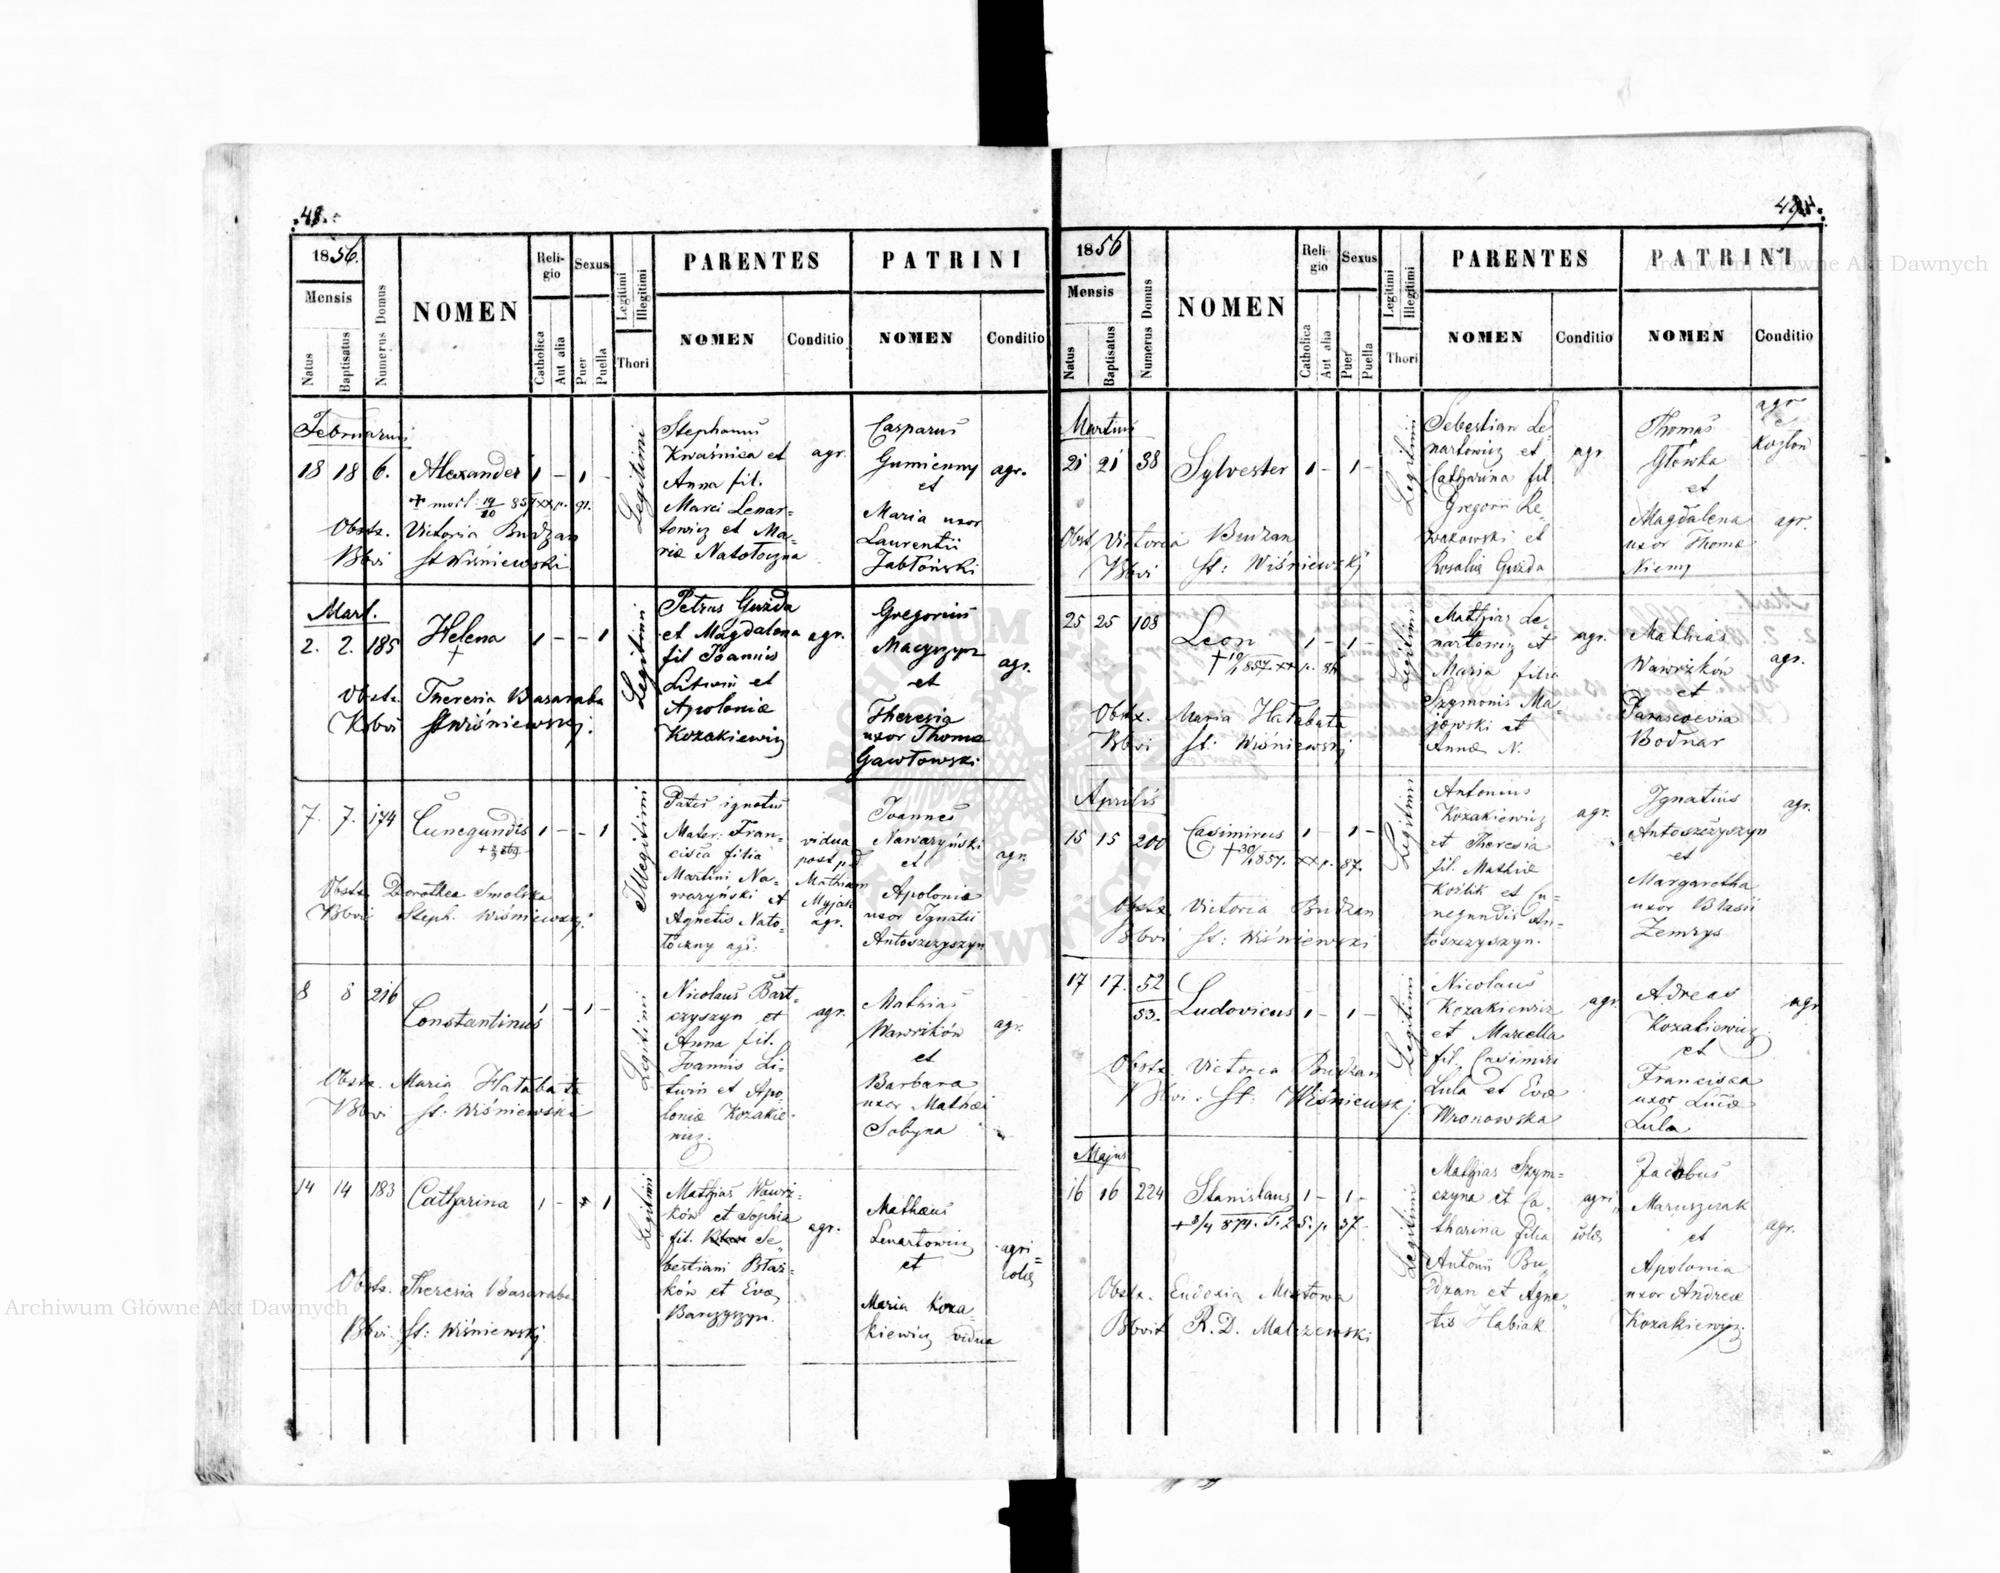 48.
1856.
Mensis
Natus
Baptisatus
Numerus Domus
NOMEN
Religio
Catholica
Aut alia
Sexus
Puer
Puella
Legitimi
Illegitimi
Thori
PARENTES
NOMEN
Conditio
PATRINI
NOMEN
Conditio
Februarius
18 18 6. Alexander 1 – 1 –
Obstx. Victoria Budzan
Bbvi St Wiśniewski
Legitimi
Stephanus
Kwaśnica et
Anna fil.
Marci Lenar-
towicz et Ma-
riæ Natołoczna
agr.
Casparus
Gumienny
et
Maria uxor
Laurentii
Jabłoński
agr.
Mart.
2. 2. 185 Helena 1 – – 1
+
Obstx. Theresia Basaraba
Bbvi St Wiśniewski.
Legitimi
Petrus Guzda
et Magdalena
fil Joannis
Litwin et
Apoloniæ
Kozakiewicz
agr.
Gregorius
et
Theresia
uxor Thomæ
Gawłowski
agr.
7. 7. 174 Cunegundis 1 – – 1
Obstx Dorothea Smolska
Bbvi Steph. Wiśniewski.
Illegitimi
Pater ignotus
Mater: Fran-
cisca filia
Martini Na-
waryński et
Agnetis Nato-
łoczny agr.
vidua
post p.d.
Mathiam
Myjak
agr.
Joannes
Nawaryński
et
Apolonia
uxor Ignatii
Antoszczyszyn
agr.
8 8 216 Constantinus 1 – 1 –
Obstx. Maria Hałabata
Bbvi St. Wiśniewski
Legitimi
Nicolaus Bart-
czyszyn et
Anna fil.
Joannis Li-
twin et Apo-
loniæ Kozakie-
wicz.
agr.
Mathias
Wawrików
et
Barbara
uxor Mathæi
Sobyna
agr.
14 14 183 Catharina 1 – 1
Obstx. Theresia Basaraba
Bbvi St: Wiśniewski
Legitimi
Mathias Wawri-
ków et Sophia
fil. Se-
bestiani Błaż-
ków et Evæ
Barczyszyn.
agr.
Mathæus
Lenartowicz
et
Maria Koza-
kiewicz vidua
agri-
colæ
1856
Mensis
Natus
Baptisatus
Numerus Domus
NOMEN
Religio
Catholica
Aut alia
Sexus
Puer
Puella
Legitimi
Illegitimi
Thori
PARENTES
NOMEN
Conditio
PATRINI
NOMEN
Conditio
Martius
21 21 38 Sylvester 1 – 1 –
Obst. Victoria Budzan
Bbvi St: Wiśniewski
Legitimi
Sebestian Le-
nartowicz et
Catharina fil.
Gregorii
et
Rosaliæ Guzda
agr.
Thomas
Główka
et
Magdalena
uxor Thomæ
Niemy
agr
agr.
25 25 108 Leon 1 – 1 –
Obstx. Maria Hałabata
Bbvi St: Wiśniewski
Legitimi
Mathias Le-
nartowicz et
Maria filia
Szymonis Ma-
jewski et
Annæ N.
agr.
Mathias
Wawrików
et
Parascevia
Bodnar
agr.
Aprilis
15 15 200 Casimirus 1 – 1 –
Obstx Victoria Budzan
Bbvi St: Wiśniewski
Legitimi
Antonius
Kozakiewicz
et Theresia
fil. Mathiæ
Kozlik et Cu-
negundis An-
toszczyszyn.
agr.
Ignatius
Antoszczyszyn
et
Margaretha
uxor Blasii
Zemrys
agr.
17 17. 52
53. Ludovicus 1 – 1 –
Obstx Victoria Budzan
Bbvi. St. Wiśniewski.
Legitimi
Nicolaus
Kozakiewicz
et Marcella
fil. Casimiri
Lula et Evæ
Wronowska
agr.
Adreas
Kozakiewicz
et
Francisca
uxor Lucæ
Lula
agr.
Majus
16 16 224 Stanislaus 1 – 1 –
Obstx. Eudoxia Mostowa
Bbvit R. D. Malczewski
Legitimi
Mathias Szym-
czyna et Ca-
tharina filia
Antonii Bu-
dzan et Agne-
tis Habiak
agri-
colæ
Jacobus
Maruszczak
et
Apolonia
uxor Andreæ
Kozakiewicz.
agr.
Archiwum Główne Akt Dawnych
Archiwum Główne Akt Dawnych